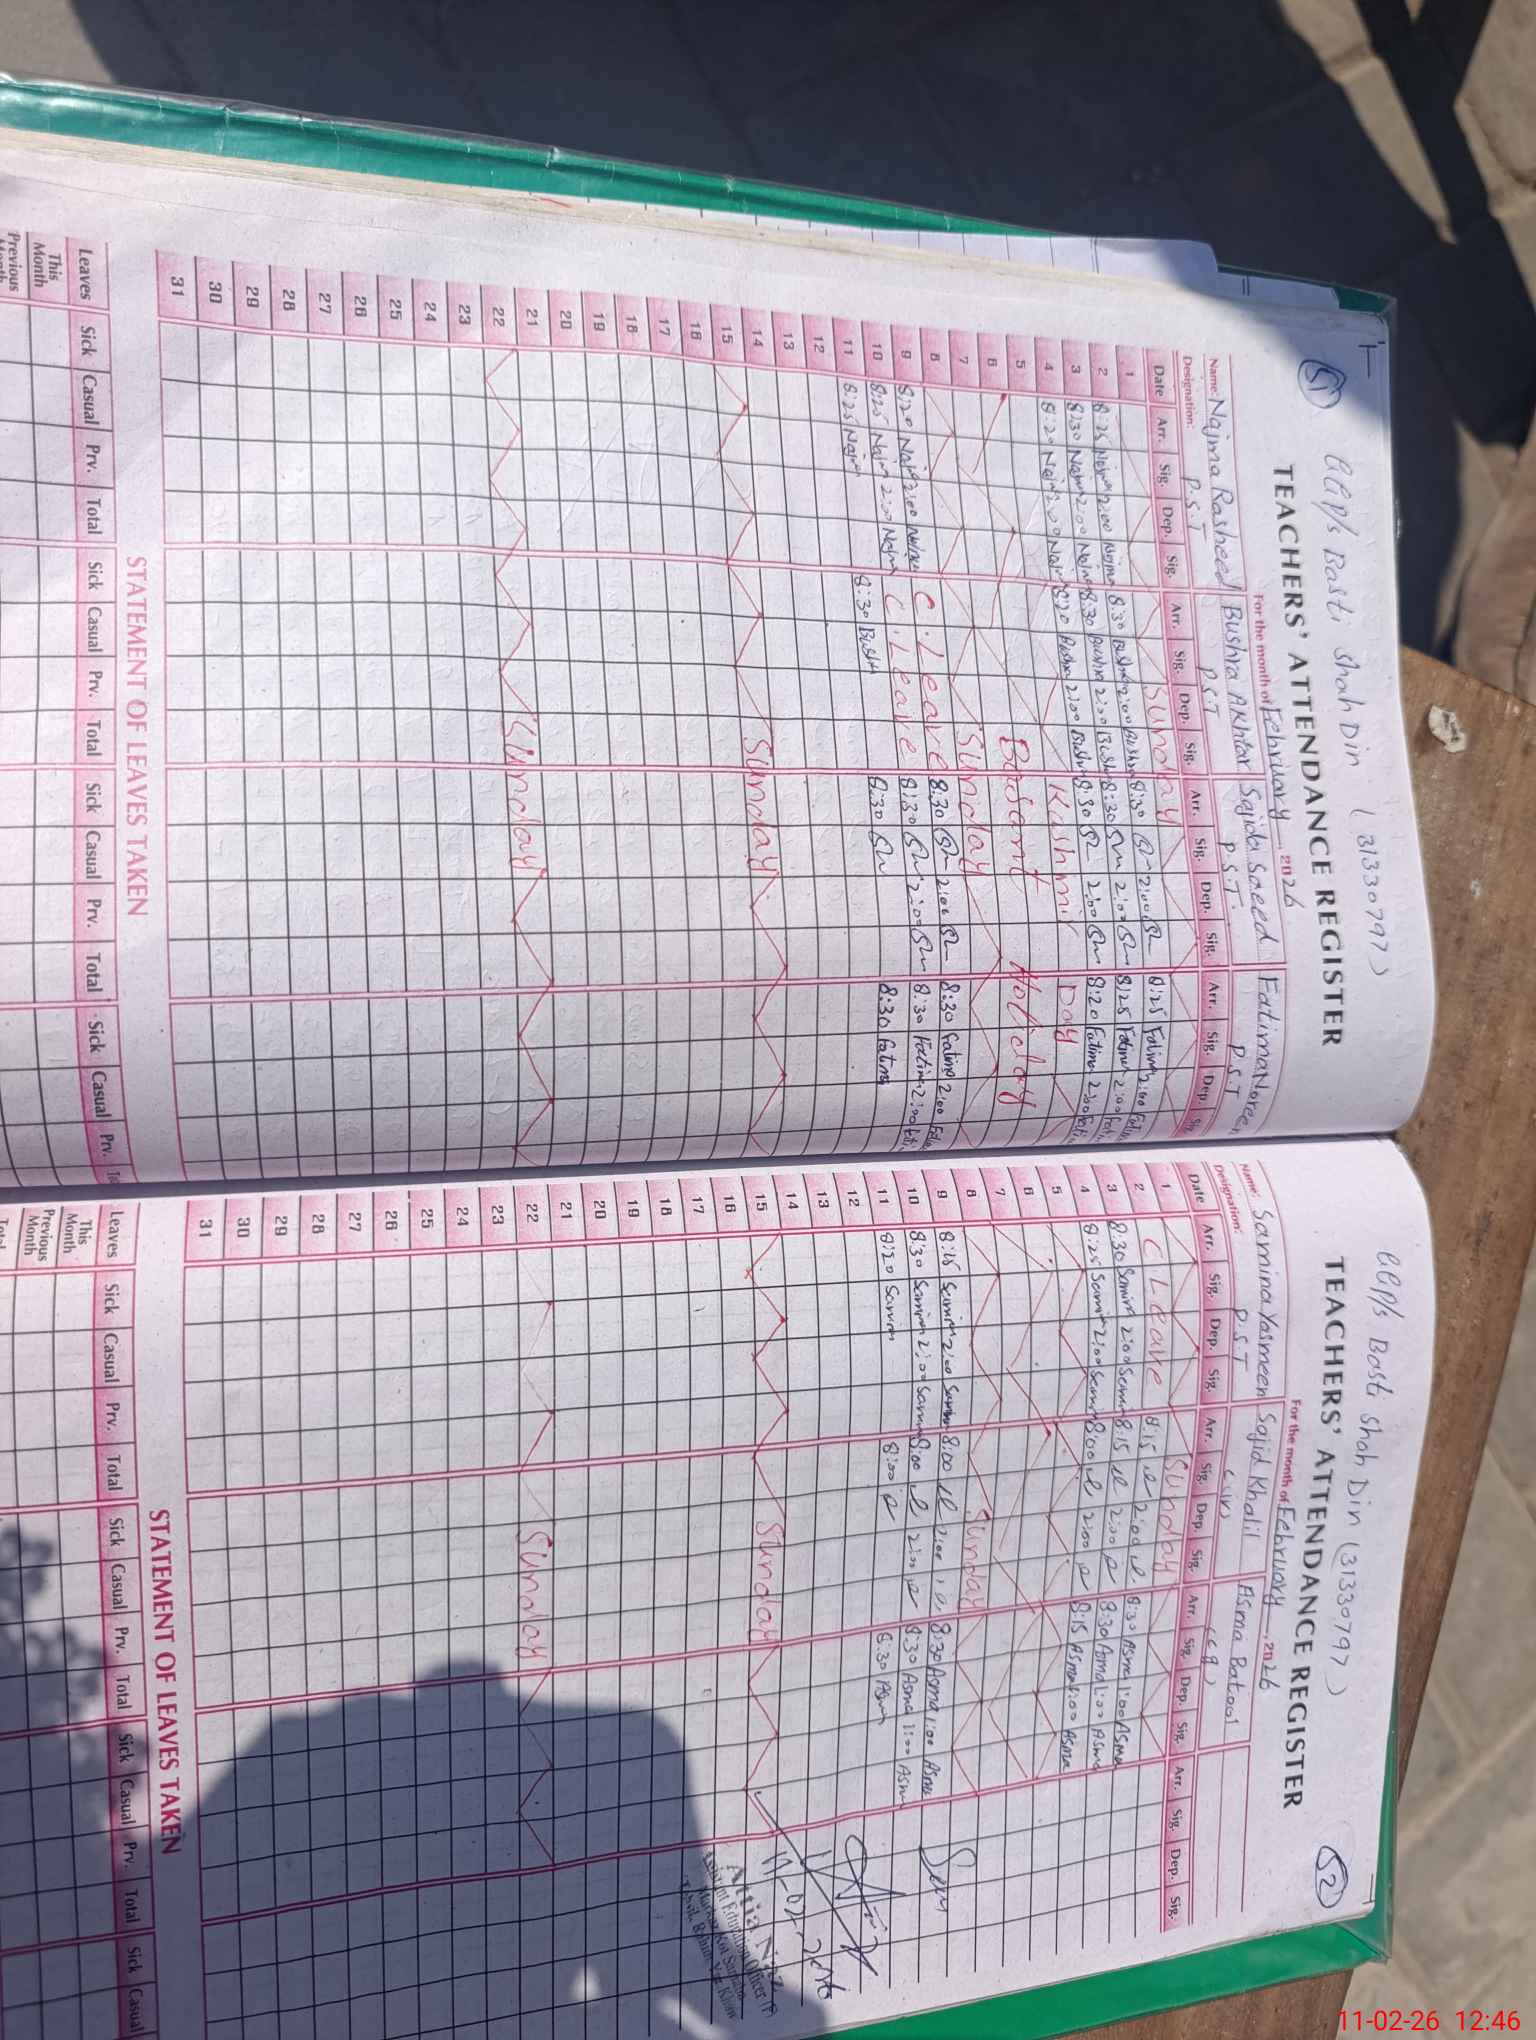 51
GGP/s Basti Shah Din (31330797)
TEACHERS' ATTENDANCE REGISTER
For the month of February, 2026
Name: Najma Rasheed Bushra Akhtar Sajida Saeed Fatima Noreen
Designation: P.S.T P.S.T P.S.T. P.S.T
Date Arr. Sig. Dep. Sig. Arr. Sig. Dep. Sig. Arr. Sig. Dep. Sig. Arr. Sig. Dep. Sig.
1 Sunday
2 8:25 Najma 2:00 Najma 8:30 Bushra 2:00 Bushra 8:30 2:00 8:25 Fatima 2:00
3 8:30 Najma 2:00 Najma 8:30 Bushra 2:00 Bushra 8:30 2:00 8:25 Fatima 2:00
4 8:20 Najma 2:00 Najma 8:20 Bushra 2:00 Bushra 8:30 2:00 8:20 Fatima 2:00
5 Kashmir Day
6 Basant Holiday
7
8 Sunday
9 8:20 2:00 C. Leave 8:30 2:00 8:30 Fatima 2:00
10 8:25 Najma 2:00 Najma C. Leave 8:30 2:00 8:30 Fatima 2:00
11 8:25 Najma 8:30 Bushra 8:30 8:30 Fatima
12
13
14
15 Sunday
16
17
18
19
20
21
22 Sunday
23
24
25
26
27
28
29
30
31
STATEMENT OF LEAVES TAKEN
Leaves Sick Casual Prv. Total Sick Casual Prv. Total Sick Casual Prv. Total Sick Casual Prv.
This Month
Previous
52
GGP/s Basti Shah Din (31330797)
TEACHERS' ATTENDANCE REGISTER
For the month of February, 2026
Name: Samina Yasmeen Sajid Khalil Asma Batool
Designation: P.S.T
Date Arr. Sig. Dep. Sig. Arr. Sig. Dep. Sig. Arr. Sig. Dep. Sig. Arr. Sig. Dep. Sig.
1 Sunday
2 C Leave 8:15 2:00 8:30 Asma 1:00 Asma
3 8:30 Samina 2:00 8:15 2:00 8:30 Asma 1:00 Asma
4 8:25 Samina 2:00 8:00 2:00 8:15 Asma 1:00 Asma
5
6
7
8 Sunday
9 Samina 2:00 8:00 2:00 8:30 Asma 1:00 Asma
10 8:30 Samina 2:00 8:00 2:00 8:30 Asma 1:00 Asma
11 8:20 Samina 8:00 8:30 Asma
12
13
14
15 Sunday
16
17
18
19
20
21
22 Sunday
23
24
25
26
27
28
29
30
31
11-02-2026
STATEMENT OF LEAVES TAKEN
Leaves Sick Casual Prv. Total Sick Casual Prv. Total Sick Casual Prv. Total Sick Casual
This Month
Previous Month
Total
11-02-26 12:46